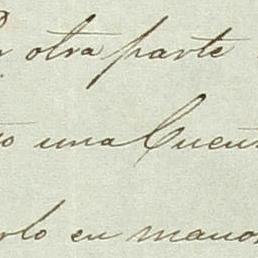 otra parte
una Cuen
en mano